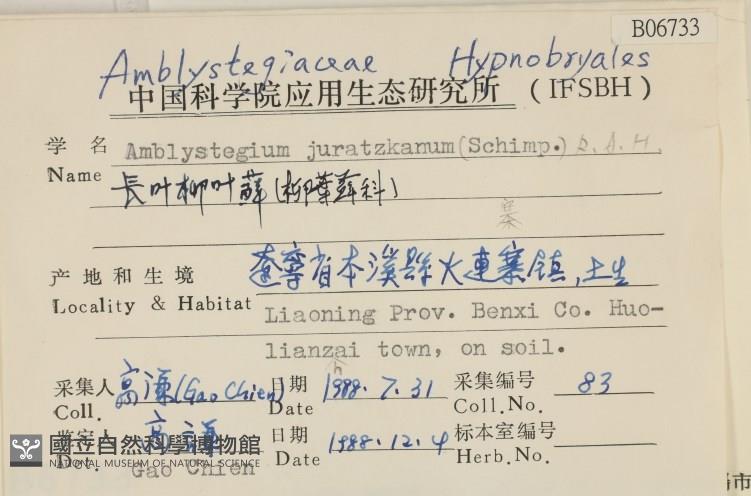 B06733
Amblystegiaceae Hypnobryales
中国科学院应用生态研究所 (IFSBH)
学名 Amblystegium juratzkanum (Schimp.) R.A.H.
Name 長叶柳叶蘚(柳葉蘚科)
寨
产地和生境 遼寧省本溪縣火連寨镇,土生
Locality & Habitat Liaoning Prov. Benxi Co. Huo-
lianzai town, on soil.
h
采集人 高谦(Gao Chien) 日期 1988.7.31 采集编号 83
Coll. Date Coll.No.
鉴定人 高謙 日期 1988.12.4 标本室编号
Det. Gao Chien Date Herb.No.
國立自然科學博物館
NATIONAL MUSEUM OF NATURAL SCIENCE
市